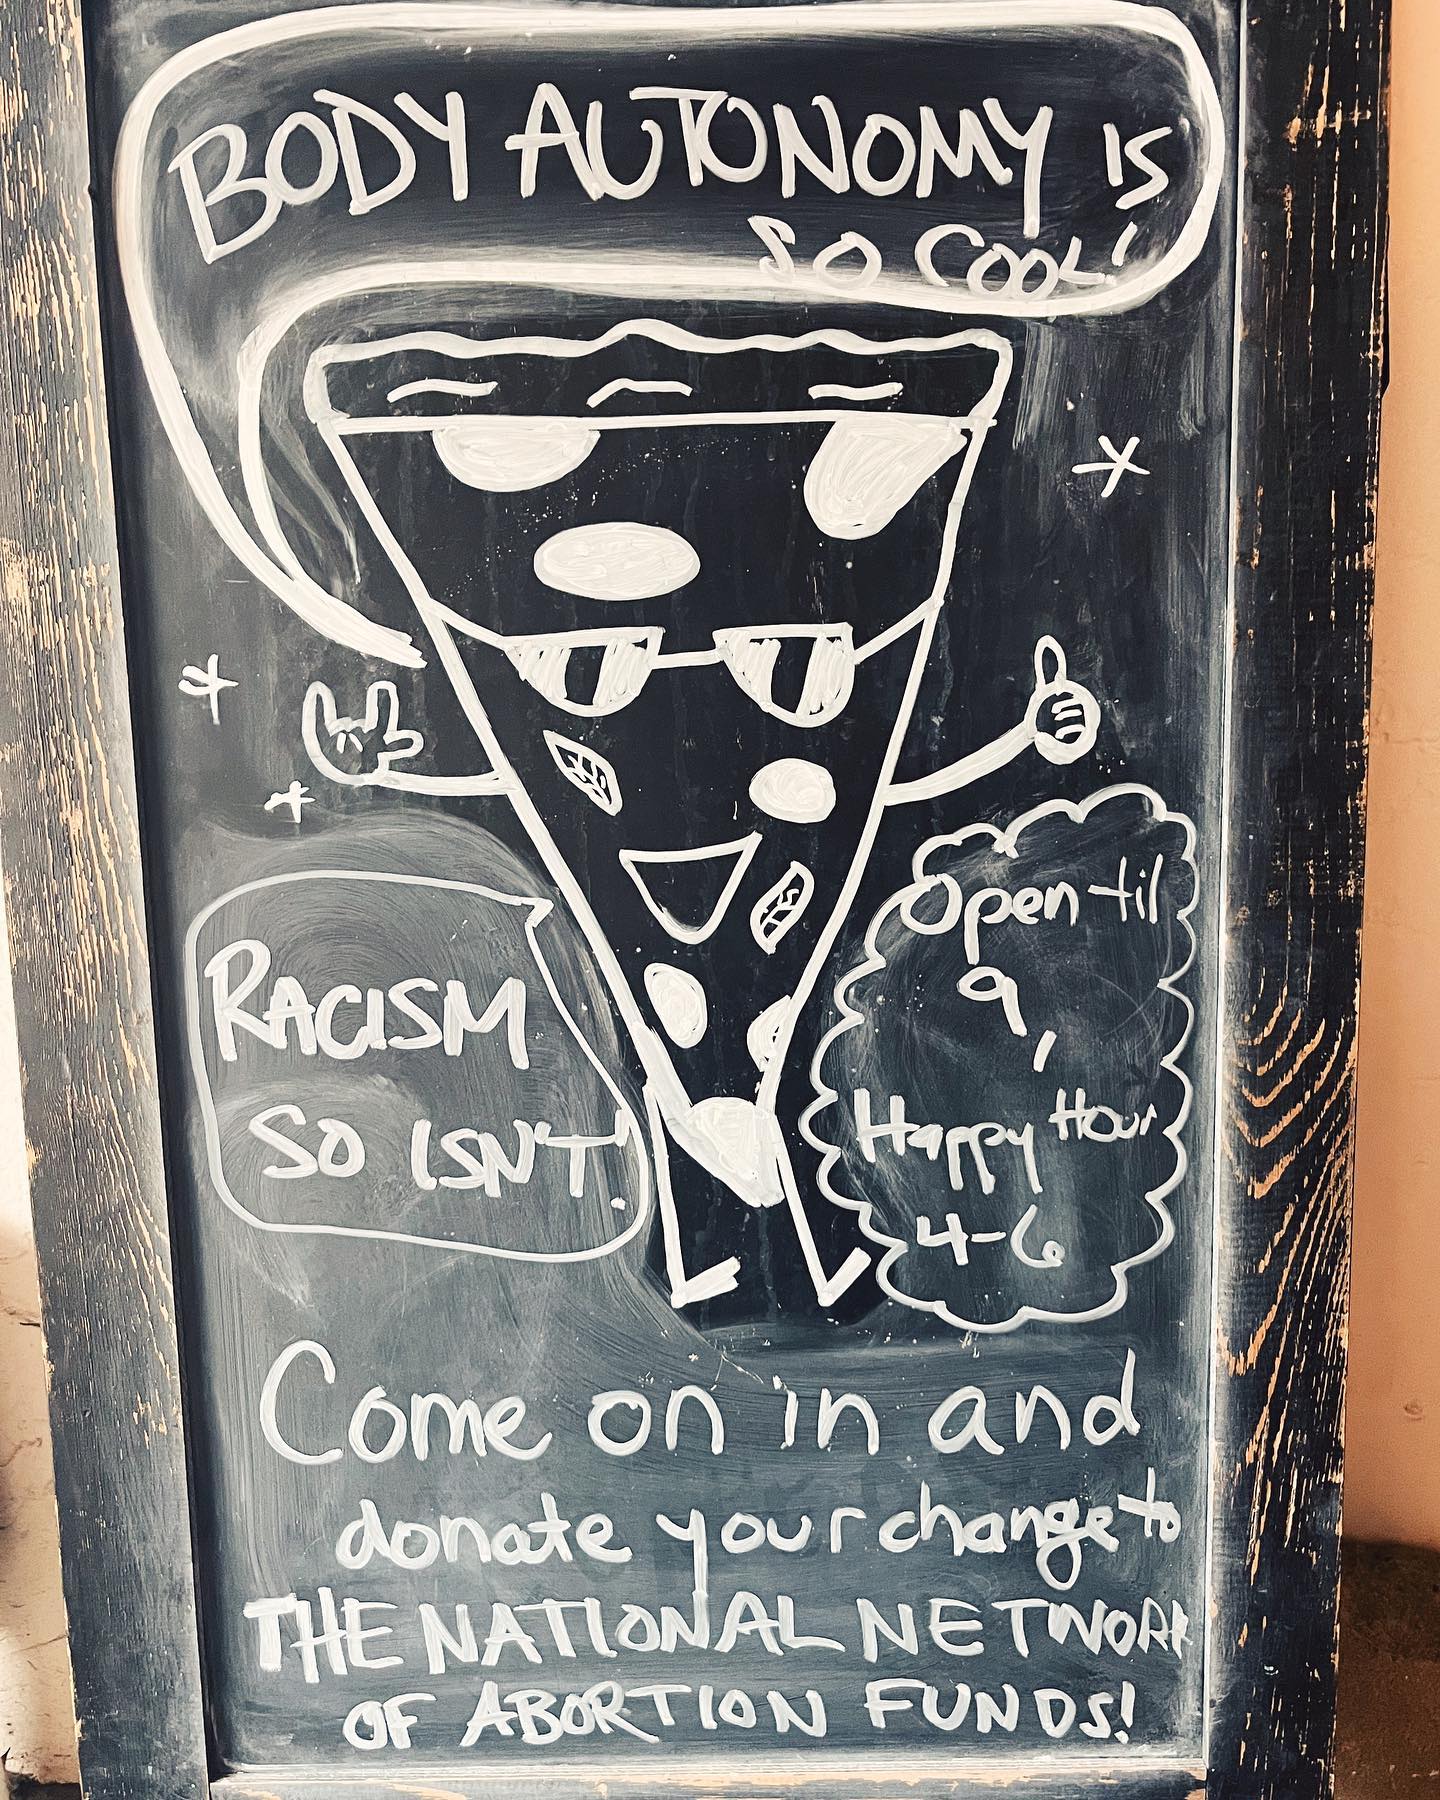 BODY AUTONOMY IS
SO COOL!
RACISM
SO ISN'T!
Open til
9,
Happy Hour
4-6
Come on in and
donate your change to
THE NATIONAL NETWORK
OF ABORTION FUNDS!